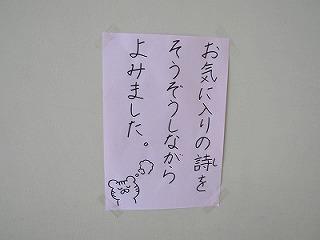 お気に入りの詩を
そうぞうしながら
よみました。